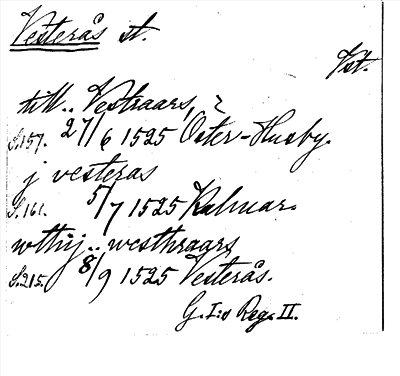 Vesterås st.
Vst.
till.. Vestraars, 2
S. 157. 27/6 1525 Öster-Husby.
j vesteras
S. 161. 5/7 1525 Kalmar.
wthij.. westhraars
S. 215. 8/9 1525 Vesterås.
G. I:s Reg. II.